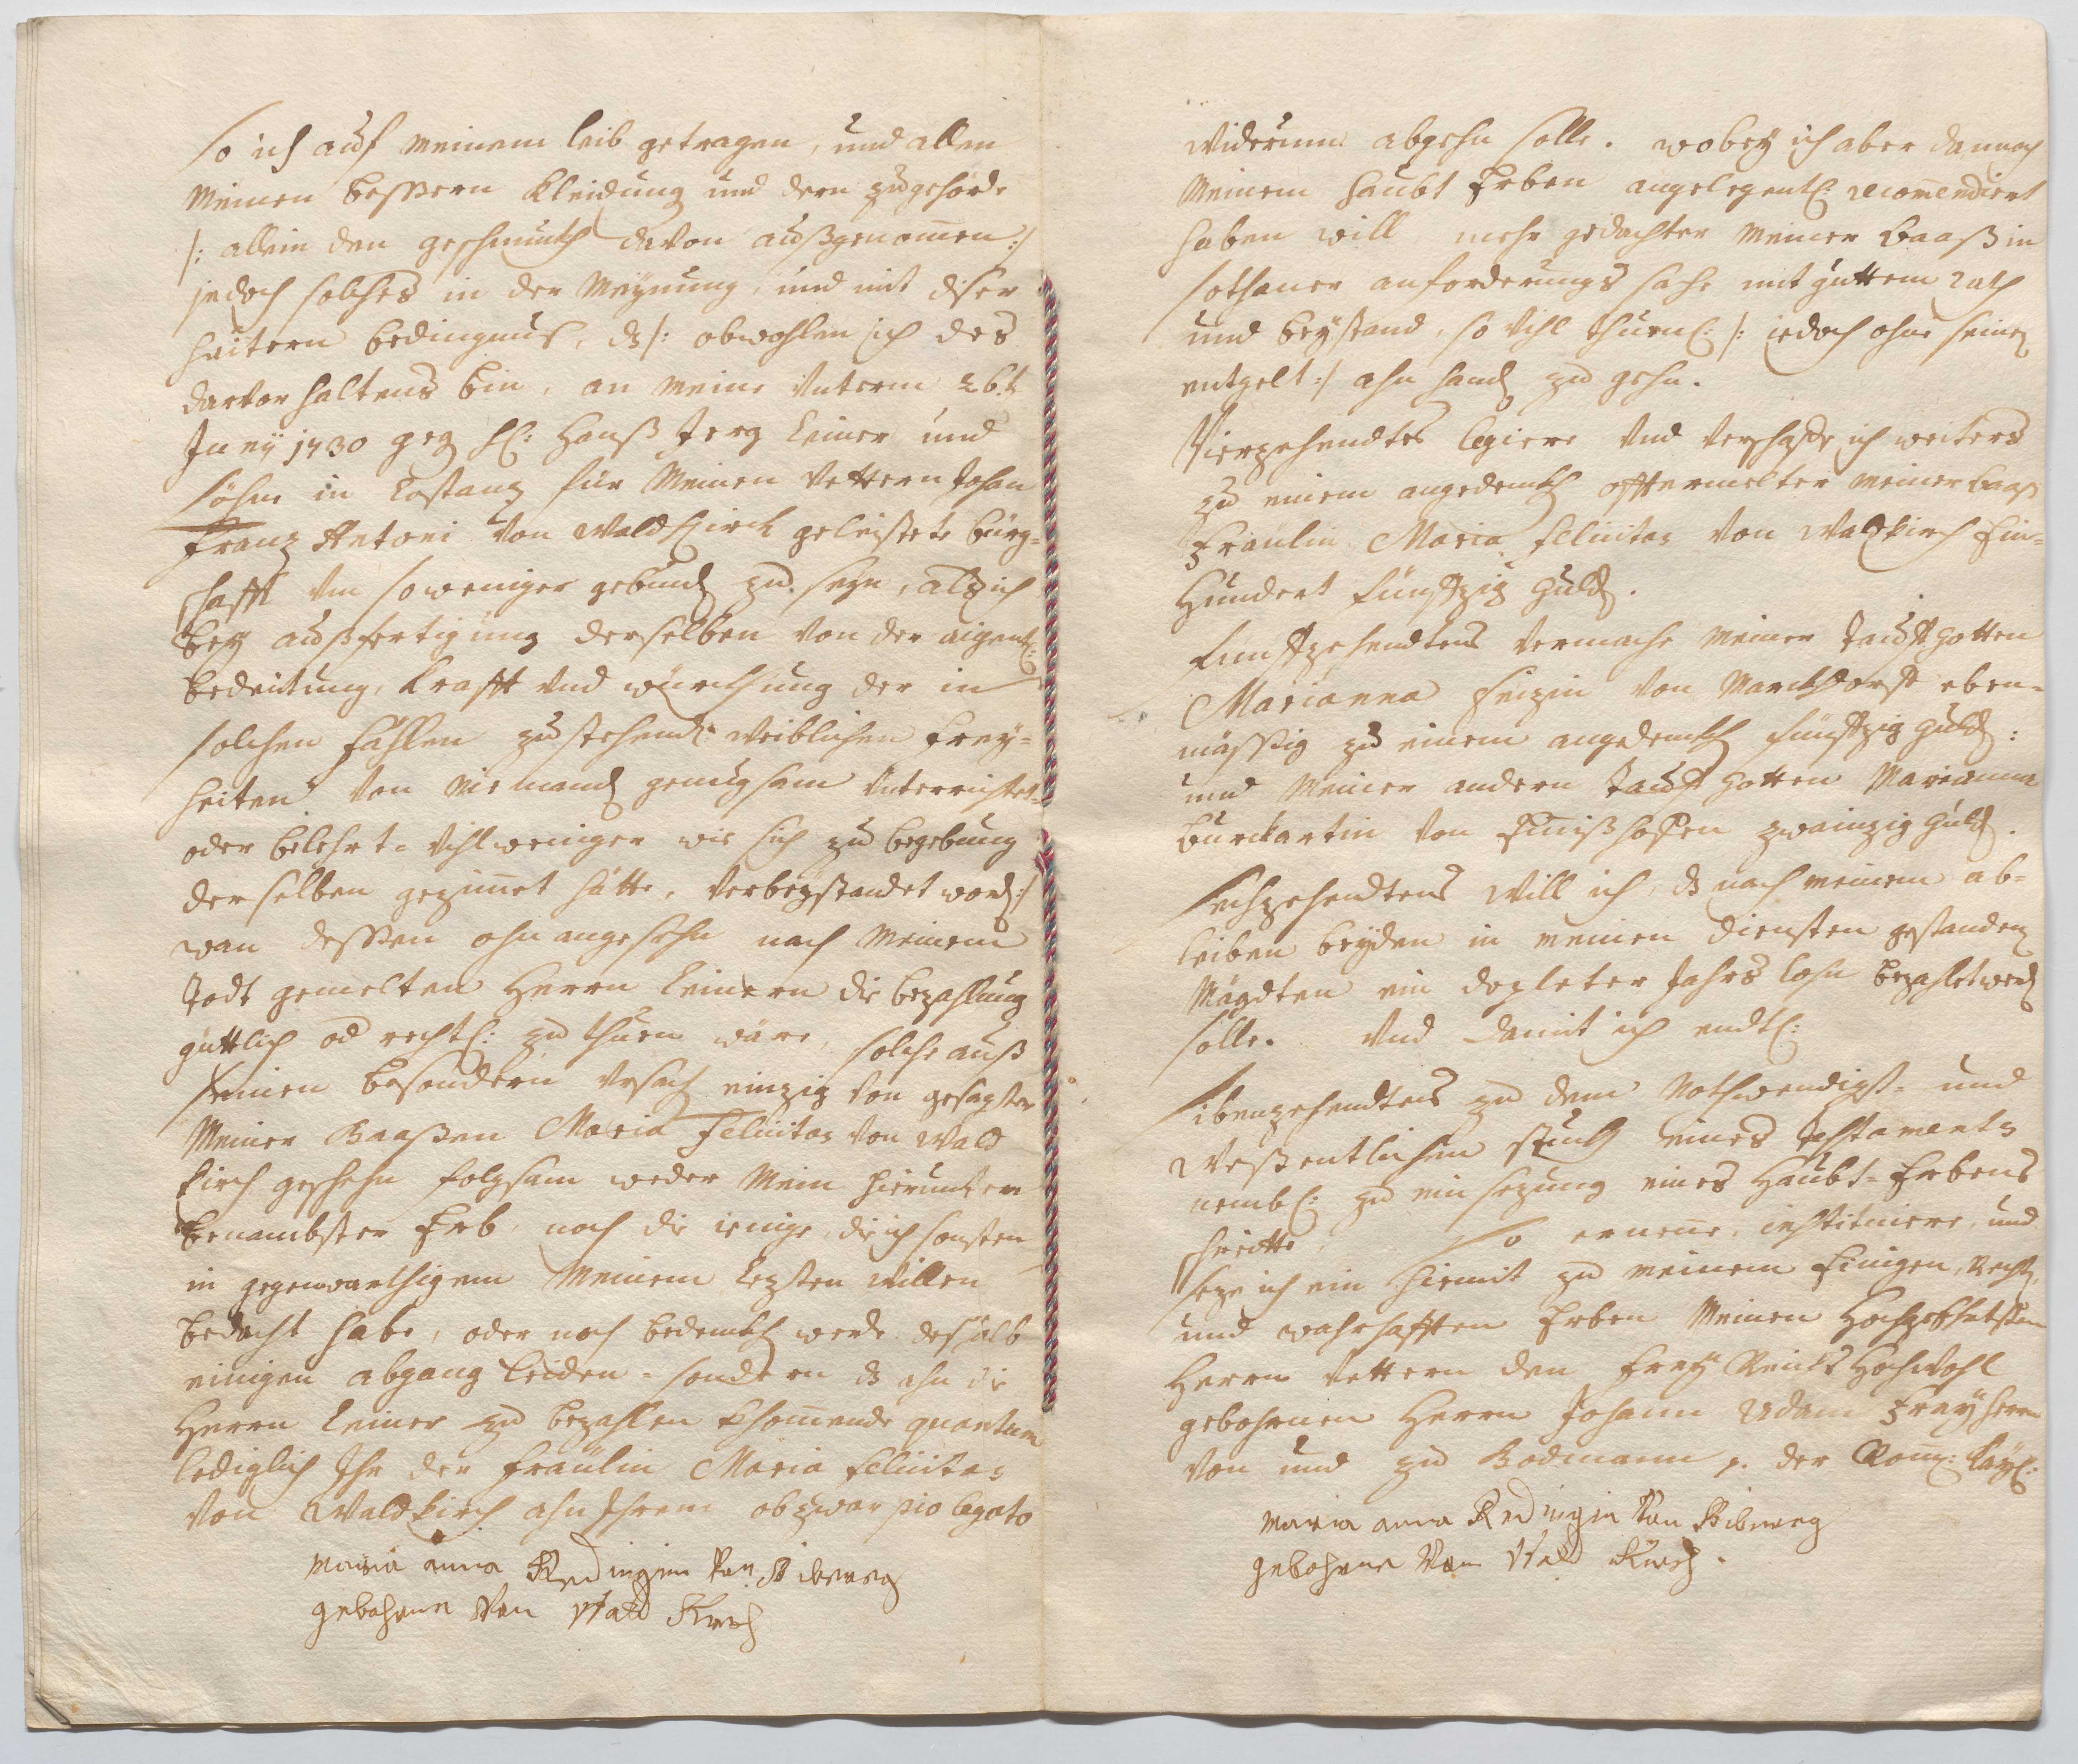 so ich auf meinem leib getragen, und allen
meinen bessern kleidung und dern zugehörde
/: allein den geschmukh davon außgenommen :/
jedoch solches in der Meynung, und mit diser
heitern bedingnus, dz /: obwohlen ich des
darvorhaltens bin, an meine unterm 26.t
Juny 1730 geg H: Hanß Jerg Leiner und
söhne in Costanz für meinen Vettern Johan
Franz Antoni von Waldkirch geleistete bürg=
schafft um so weniger gebund zu seyn, alß ich
bey außfertigung derselben von der aigentl:
bedeitung, krafft und würckhung der in
solchen fählen zustehend weiblichen Frey=
heiten von niemand genugsam unterrichtet=
oder belehrt= vihlweniger wie sich zu begebung
derselben gezimet hätte, verbeystandet word :/
wan dessen ohnangesehn nach meinem
Todt gemelten Herrn Leinern die bezahlung
güttlich od rechtl: zu thuen wäre, solche auß
seinen besondern ursach einzig von gesagter
Meiner Baaßen Maria Felicitas von Wald
kirch geschehn folgsam weder mein hierunten
benambster Erb, noch die ienige, die ich sonsten
in gegenwärthigem meinem Lezsten Willen
bedacht habe, oder noch bedenckh werde deshalb
einigen abgang leiden= sondern dz ahn die
Herrn Leiner zu bezahlen khommende quantum
lediglich Ihr der Fräulin Maria Felicitas
von Waldkirch ahn Ihrem obzwar pio legato
Maria anna Redingin von Biberegg
gebohrne Von Wald Kirch
widerumb abgehn solle. wobey ich aber dannoch
meinem Haubt Erben angelegentl: recommendiert
haben will mehr gedachter meiner Baaß in
sothaner anforderungs sache mit guttem Rath
und beystand, so vihl thuenl: /: iedoch ohne seine
entgelt :/ ahn hand zu gehn.
Vierzehendtes legiere und verschaffe ich weiters
zu einem angedenckh offtermelter meiner Baaß
Fräulin Maria Felicitas von Waldkirch Ein=
Hundert fünffzig Guld.
Fünffzehendtens vermache meiner Tauff Gotten
Marianna von Marckhdorff eben=
mässig zu einem angedenckh fünffzig Guld:
und meiner andern Tauff Gotten Marianna
Burckartin von zwainzig Guld.
Sechzehendtens will ich, dz nach meinem ab=
leiben beyden in meinen diensten gestanden
Mägdten ein dopleter Jahrs lohn bezahlet werd
solle. Und damit ich endtl:
Sibenzehendtens zu dem nothwendigst= und
wesßentlichen stuckh eines Testaments
nembl: zu einsezung eines Haubt=Erbens
schreitte, So ernenne, instituiere, und
seze ich ein hiemit zu meinem Einigen, recht,
und wahrhafften Erben meinen Hochgeehrtsten
Herrn Vettern den Frey Reichs Hochwohl
gebohrnen Herrn Johann Adam Freyherrn
von und zu Bodmann p. der Röm: kayl:
Maria anna Redingin Von Biberegg
gebohrne Von Wald Kirch.